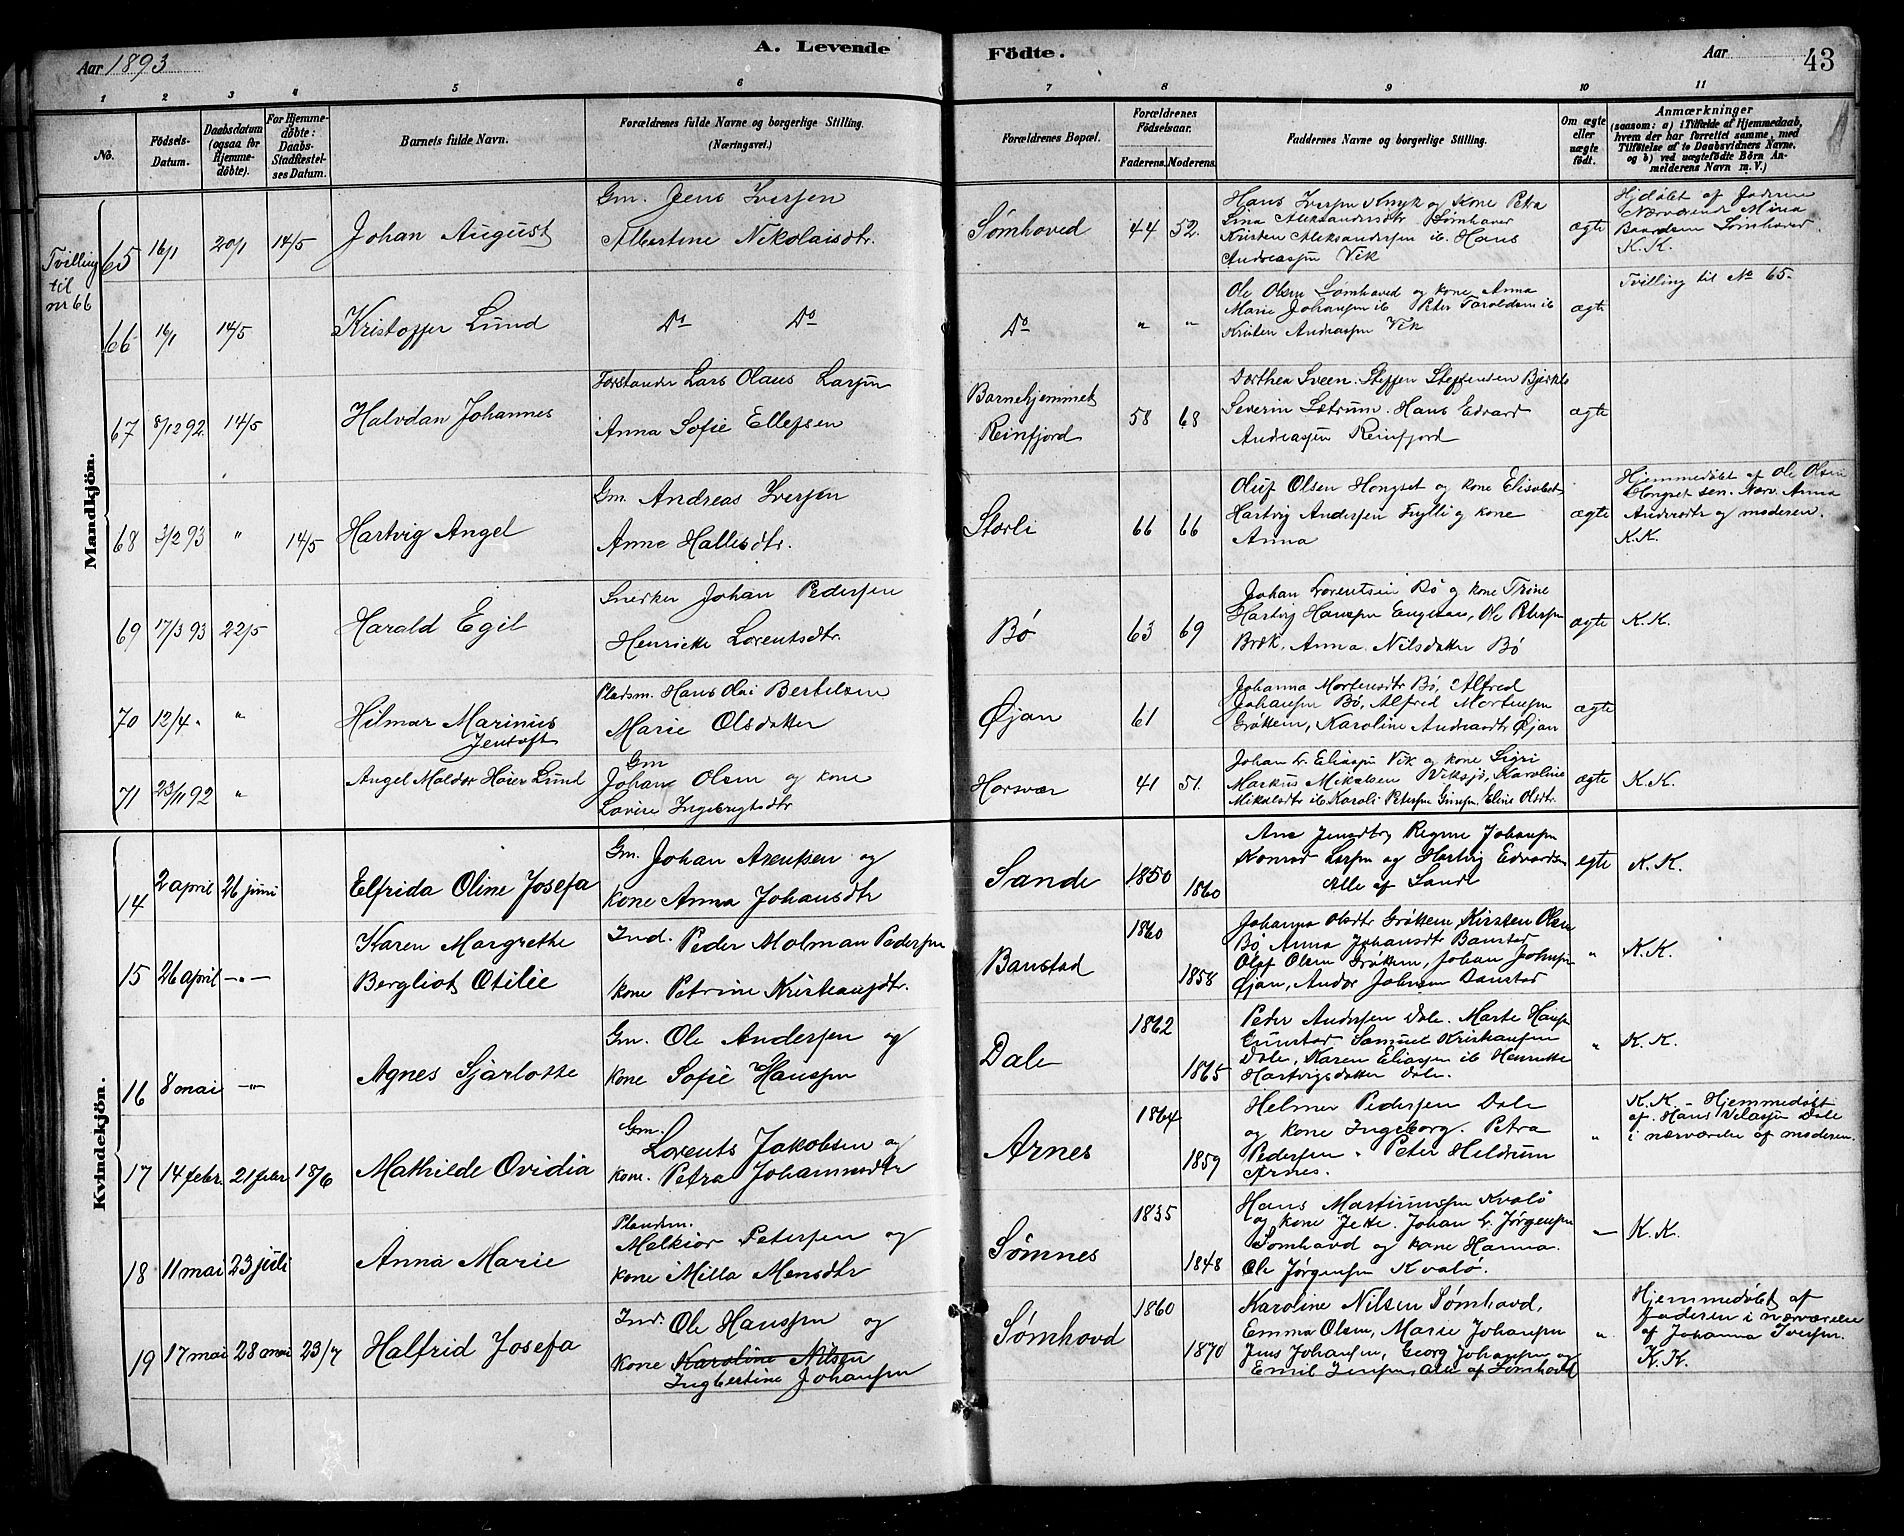 Aar 1893
A. Levende
Fødte.
Aar
43
1 2 3 4 5 6 7 8 9 10 11
No.
Födsels-Datum.
Daabsdatum (ogsaa for Hjemme-døbte).
For Hjemme-døbte: Daabs-Stadfæstel-ses Datum.
Barnets fulde Navn.
Forældrenes fulde Navne og borgerlige Stilling. (Næringsvei.)
Forældrenes Bopæl.
Forældrenes Fødselsaar.
Faderens. Moderens.
Faddernes Navne og borgerlige Stilling.
Om ægte eller uægte født.
Anmærkninger
(saasom: a) i Tilfælde af Hjemmedaab, hvem der har forrettet samme, med Tilføielse af to Daabsvidners Navne, og b) ved uægtefödte Börn An-melderens Navn m. V.)
Mandkjön.
Tvilling til nr 66
65 16/1 20/1 14/5 Johan August
Gm. Jens Iversen
Albertine Nikolaisdtr.
Sømhoved 44 52.
Hans Iversen og Kone Petra
Lina Aleksandersdtr Sømhaved
Kristen Aleksandersen ib. Hans
Andreassen Vik
ægte
Hjdøbt af Faderen
Nærværende Mina
Baardsen Sømhaved.
K.K.
66 16/1 14/5 Kristoffer Lund
Do Do
Do " "
Ole Olsen Sømhaved og kone Anna
Marie Johansen ib Peter Toroldsen ib
Kristen Andreassen Vik
ægte
Tvilling til No 65.
67 8/12 92. 14/5 Halvdan Johannes
Forstander Lars Olaus Larsen
Anna Sofie Ellefsen
Barnehjemmet
Reinfjord
58 68
Dorthea Sveen. Steffen Steffensen Bjerkli
Severin Sætrum. Hans Edvard
Andreassen Reinfjord
ægte
68 3/2 93 " 14/5 Hartvig Angel
Gm. Andreas Iversen
Anne Hallesdtr.
Storli 66 66
Oluf Olsen Hongset og kone Elisabet
Hartvig Andersen og kone
Anna
ægte
Hjemmedøbt af Ole Olsen
Hongset sen. Nærv. Anna
Andersdtr og moderen.
K.K.
69 17/3 93 22/5 Harald Egil
Snekker Johan Pedersen
Henrikke Lorentsdtr.
Bø 63 69
Johan Lorentsen Bø og kone Trine
Hartvig Hanssen Engenes, Ole Petersen
Bræk, Anna Nilsdatter Bø
ægte K.K.
70 12/4 " " Hilmar Marinius
Jentoft
Pladsm. Hans Olai Bertelsen
Marie Olsdatter
Øjan 61
Johanna Mortensdtr Bø, Alfred
Johansen Bø, Alfred Mortensen
Grøttem, Karoline Andreasdtr Øjan
ægte
71 23/11 92 " Angel Moldor Høier Lund
Gm
Johan Olsen og kone
Lovise Ingebrigtsdtr
Horsvær 41 51.
Johan L. Eliassen Vik og kone Sigri
Markus Mikalsen Viksjø, Karoline
Mikalsdtr ib. Karoli Petersen Eline Olsdtr.
ægte K.K.
Kvindekjön.
14 2 april 26 juni Elfrida Oline Josefa
Gm. Johan Arentsen og
kone Anna Johansdtr
Sande 1850 1860
Ane Jensdtr, Regine Johansen
Konrad Larsen og Hartvig Edvardsen
Alle af Sande
egte K.K.
15 26 april -"- Karen Margrethe
Bergliot Otilie
Ind. Peder Molman Pedersen
kone Petrine Kristiansdtr.
Baustad 1860 1858
Johanna Olsdtr Grøttem Kirsten Olsen
Bø, Anna Johansdtr Baustad
Olaf Olsen Grøttem, Johan Johnsen
Øjan, Andor Johnsen Baustad
" K.K.
16 8 mai -"- Agnes Sjarlotte
Gm. Ole Andersen og
kone Sofie Hanssen
Dale 1862 1865
Peder Andersen Dale. Marte Hansen
Samuel Kristiansen
Dale, Karen Eliassen ib Henrikke
Hartvigsdatter Dale.
" K.K.
17 14 febr. 21 febr 18/6 Mathilde Ovidia
Gm.
Lorents Jakobsen og
kone. Petra Johannesdtr
Arnes 1864 1859
Helmer Pedersen Dale
og kone Ingeborg. Petra
Pedersen. Peter Heldrum
Arnes.
"
K.K. - Hjemmedøbt
af Hans Dale
i nærværelse af moderen.
18 11 mai 23 juli Anna Marie
Plandsm.
Melkior Petersen og
kone Milla Monsdtr
Sømnes 1835 1848
Hans Martinussen Kvalø
og kone Jette. Johan L. Jørgensen
Sømhovd og kone Hanna.
Ole Jørgensen Kvalø.
— K.K.
19 17 mai 28 mai 23/7 Halfrid Josefa
Ind. Ole Hanssen og
kone Karoline Nilsen
Ingbertine Johansen
Sømhovd 1860 1870
Karoline Nilsen Sømhovd,
Emma Olsen, Marie Johansen
Jens Johansen, Georg Johansen og
Emil Jensen, Alle af Sømhovd
"
Hjemmedøbt af
Faderen i nærværelse
af Johanna Iversen.
K.K.